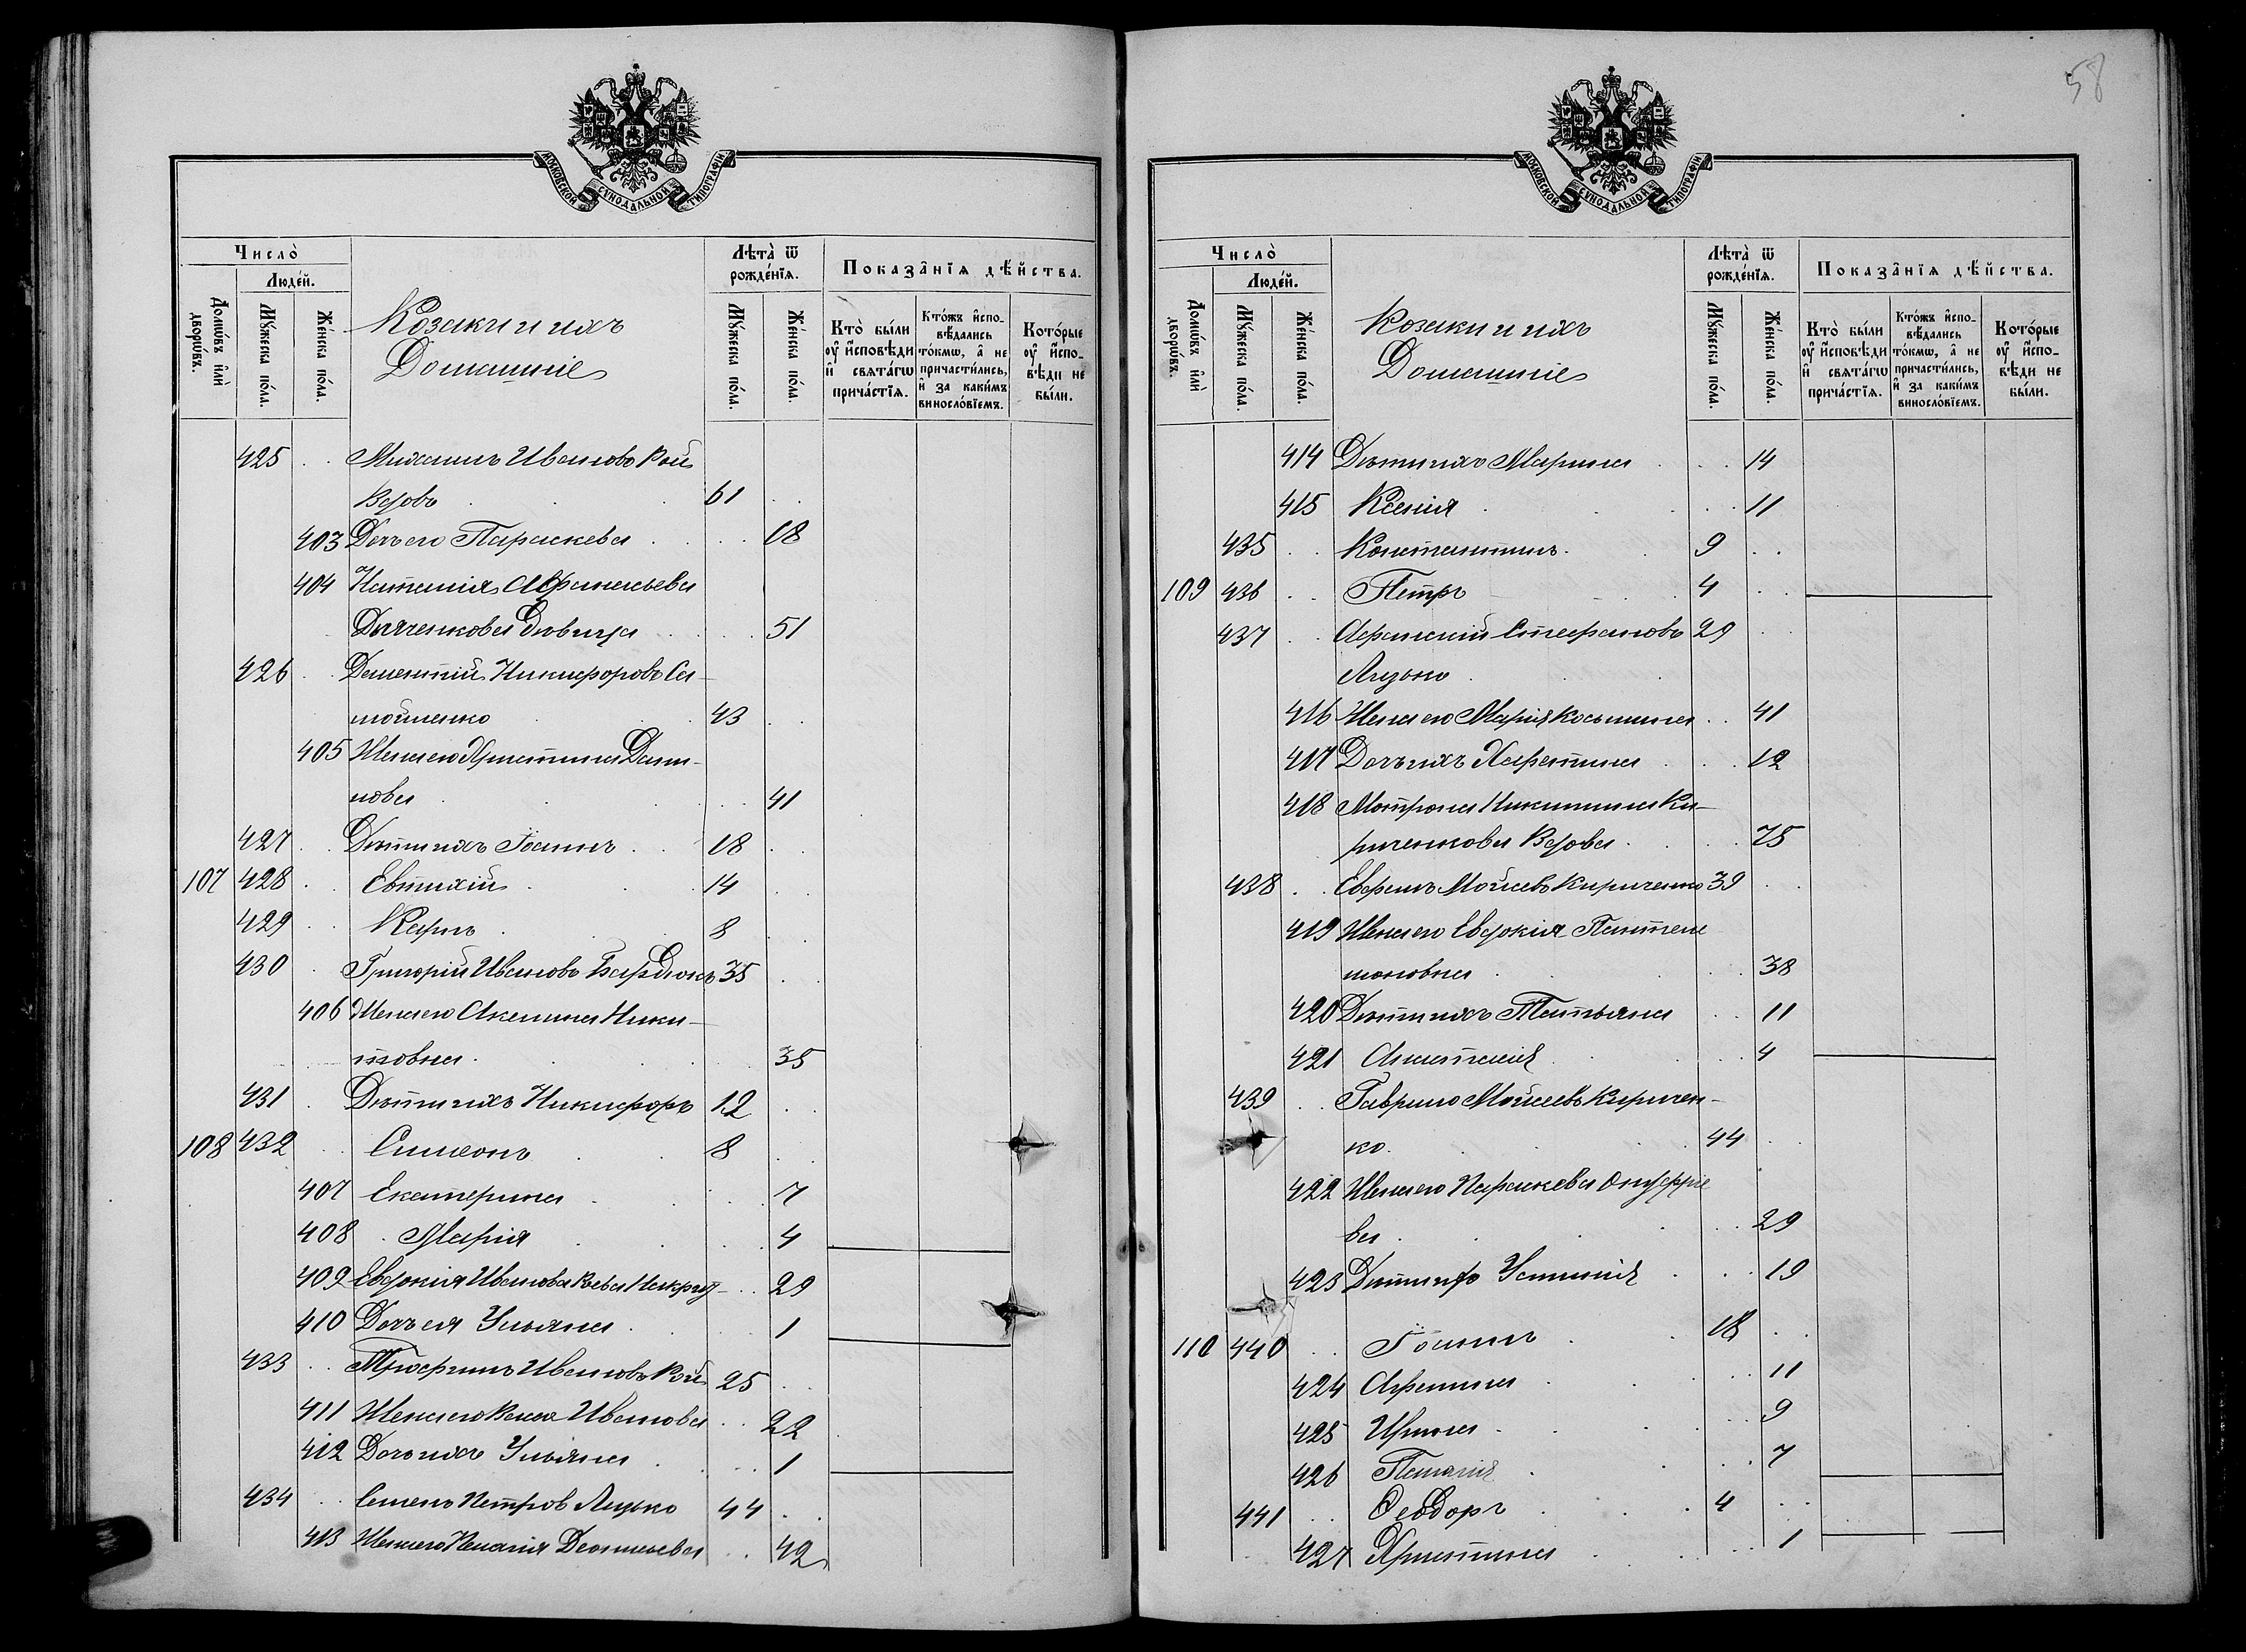 МОСКОВСКОЙ СѴНОДАЛЬНОЙ ТИПОГРАФІИ.
Число̀
Людéй.
Домѡ́въ и҆лѝ дворѡ́въ.
Мꙋ́жеска по́ла.
Жéнска по́ла.
Козаки и ихъ
Домашніе
Лѣта̀ ѿ рождéнїѧ.
Мꙋ́жеска по́ла.
Жéнска по́ла.
Показа̑нїѧ дѣ́йства.
Кто̀ бы́ли оу҆ и҆сповѣди и҆ свѧта́гѡ прича́стїѧ.
Кто́жъ и҆спо-вѣдались то́кмѡ, а҆ не причасти́лись, и҆ за каки́мъ винослóвїемъ.
Кото́рые оу҆ и҆спо-вѣди не бы́ли.
425 Михаилъ Ивановъ Вой
Вдовъ 61
403 Дочь его Параскева 18
404 Наталія Афанасьева
Дьяченкова Девица 51
426 Дементій Никифоровъ Са-
мойленко 43
405 Жена его Христина Дани-
лова 41
427 Дети ихъ Іоаннъ 18
107 428 Евтихій 14
429 Карпъ 8
430 Григорій Ивановъ Бардюкъ 35
406 Жена его Акелина Ники-
товна 35
431 Дети ихъ Никифоръ 12
108 432 Симеонъ 8
407 Екатерина 7
408 Марія 4
409 Евдокія Иванова 29
410 Дочь ея Ульяна 1
433 Трофимъ Ивановъ Вой 25
411 Жена его Ивановна 22
412 Дочь ихъ Ульяна 1
434 Семенъ Петров Луцько 44
413 Жена его Пелагія Деонисьева 42
58
МОСКОВСКОЙ СѴНОДАЛЬНОЙ ТИПОГРАФІИ.
Число̀
Людéй.
Домѡ́въ и҆лѝ дворѡ́въ.
Мꙋ́жеска по́ла.
Жéнска по́ла.
Козаки и ихъ
Домашніе
Лѣта̀ ѿ рождéнїѧ.
Мꙋ́жеска по́ла.
Жéнска по́ла.
Показа̑нїѧ дѣ́йства.
Кто̀ бы́ли оу҆ и҆сповѣди и҆ свѧта́гѡ прича́стїѧ.
Кто́жъ и҆спо-вѣдались то́кмѡ, а҆ не причасти́лись, и҆ за каки́мъ винослóвїемъ.
Кото́рые оу҆ и҆спо-вѣди не бы́ли.
414 Дети ихъ Марина 14
415 Ксенія 11
435 Константинъ 9
109 436 Петръ 4
437 Афанасій Стефановъ 29
Луцько
416 Жена его Марія Косьмина 41
417 Дочь ихъ Харитина 12
418 Мотрона Никитина Ки-
риченкова Вдова 75
438 Ефремъ Мойсевъ Кириченко 39
419 Жена его Евдокія Пантели
моновна 38
420 Дети ихъ Татьяна 11
421 Анастасія 4
439 Гаврило Мойсеевъ Киричен-
ко 44
422 Жена его Параскева Онуфріе
ва 29
423 Дети его Устинія 19
110 440 Іоаннъ 18
424 Афимія 11
425 Ирина 9
426 Пелагія 7
441 Феодоръ 4
427 Христина 1